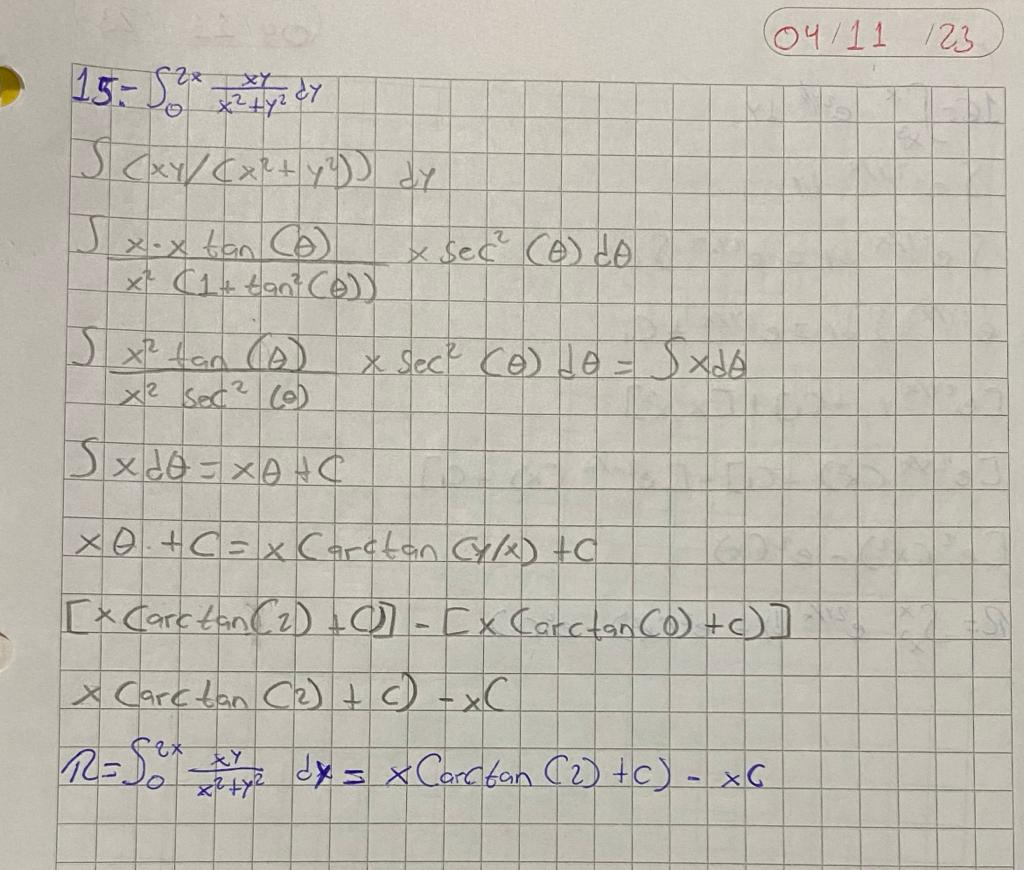 04/11/23
15= ∫₀²ˣ xy/(x²+y²) dy
∫ (xy/(x²+y²)) dy
∫ x·x tan(θ) / x² (1+tan²(θ)) x sec² (θ) dθ
∫ x² tan(θ) / x² sec² (θ) x sec² (θ) dθ = ∫ x dθ
∫ x dθ = xθ + C
xθ + C = x (arctan (y/x) + C
[x (arctan(2) + C)] - [x (arctan(0) + c)]
x (arctan (2) + c) - xC
R= ∫₀²ˣ xy/(x²+y²) dy = x (arctan (2) + c) - xC